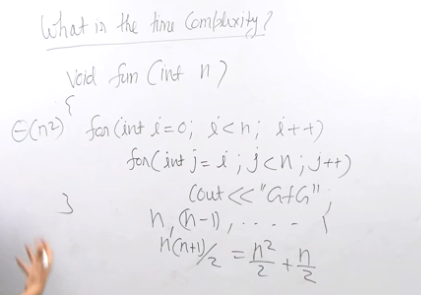 What is the time Complexity?
Void fun (int n)
{
Θ(n²) for(int i=0; i<n; i++)
for(int j=i; j<n; j++)
Cout << "GfG";
}
n, (n-1), ..... 1
n(n+1)/2 = n²/2 + n/2